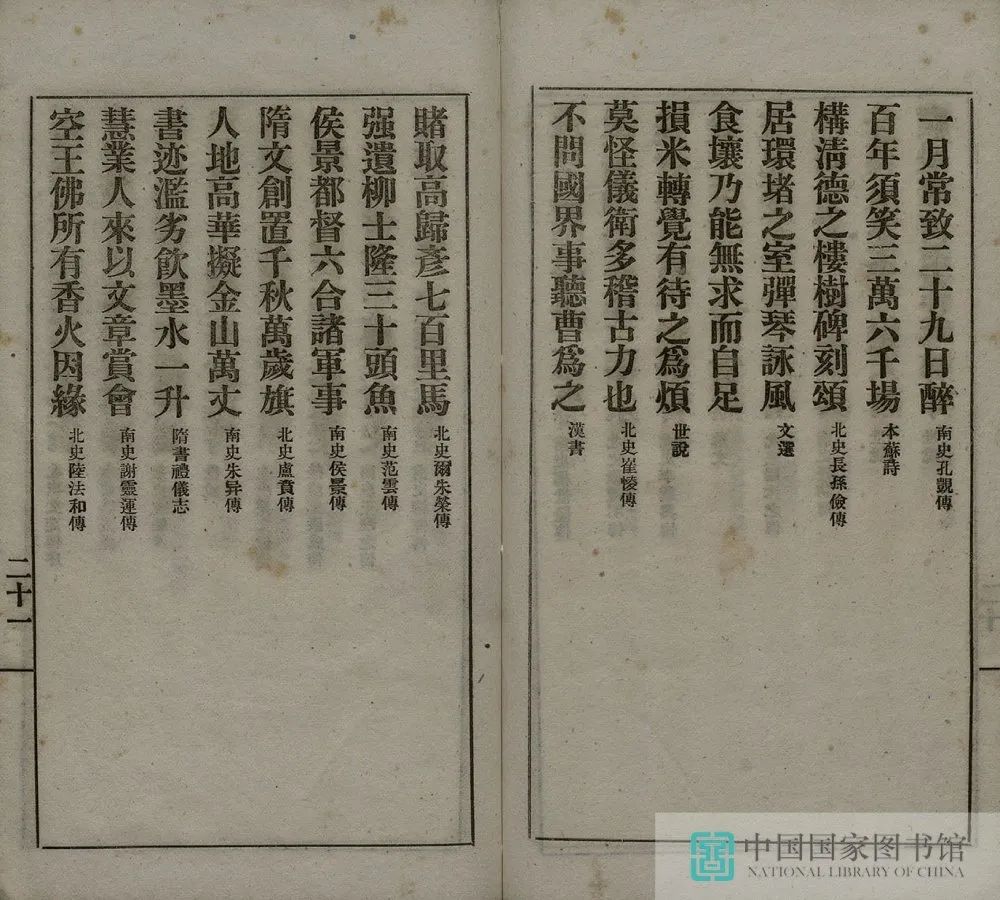 一月常致二十九日醉 南史孔覬傳
百年須笑三萬六千場 本蘇詩
構淸德之樓樹碑刻頌 北史長孫儉傳
居環堵之室彈琴詠風 文選
食壤乃能無求而自足
損米轉覺有待之爲煩 世說
莫怪儀衛多稽古力也 北史崔㥄傳
不問國界事聽曹爲之 漢書
賭取高歸彥七百里馬 北史爾朱榮傳
强遺柳士隆三十頭魚 南史范雲傳
侯景都督六合諸軍事 南史侯景傳
隋文創置千秋萬歲旗 北史盧賁傳
人地高華擬金山萬丈 南史朱异傳
書迹濫劣飲墨水一升 隋書禮儀志
慧業人來以文章賞會 南史謝靈運傳
空王佛所有香火因緣 北史陸法和傳
二十一
中国国家图书馆
NATIONAL LIBRARY OF CHINA